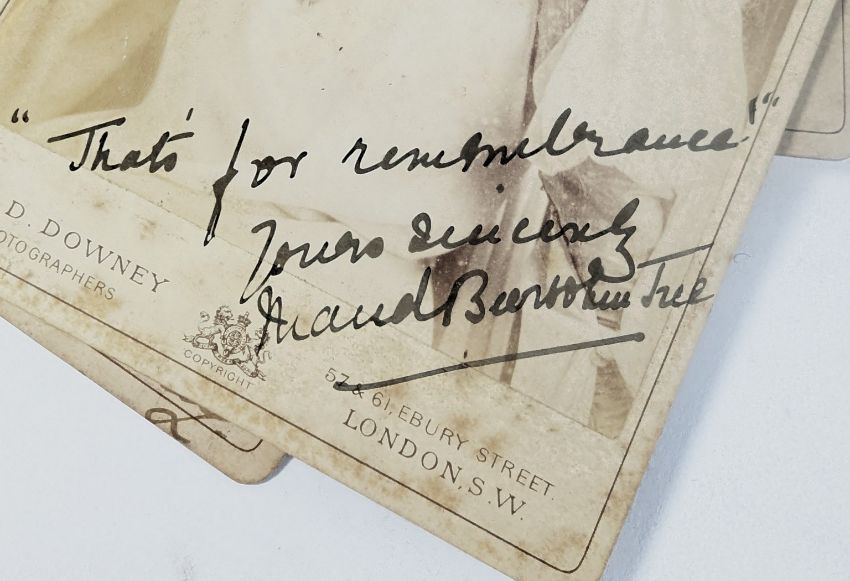 "That's for remembrance!"
Yours sincerely
Maud Beerbohm Tree
D. DOWNEY
OTOGRAPHERS
COPYRIGHT
57 & 61, EBURY STREET.
LONDON, S.W.